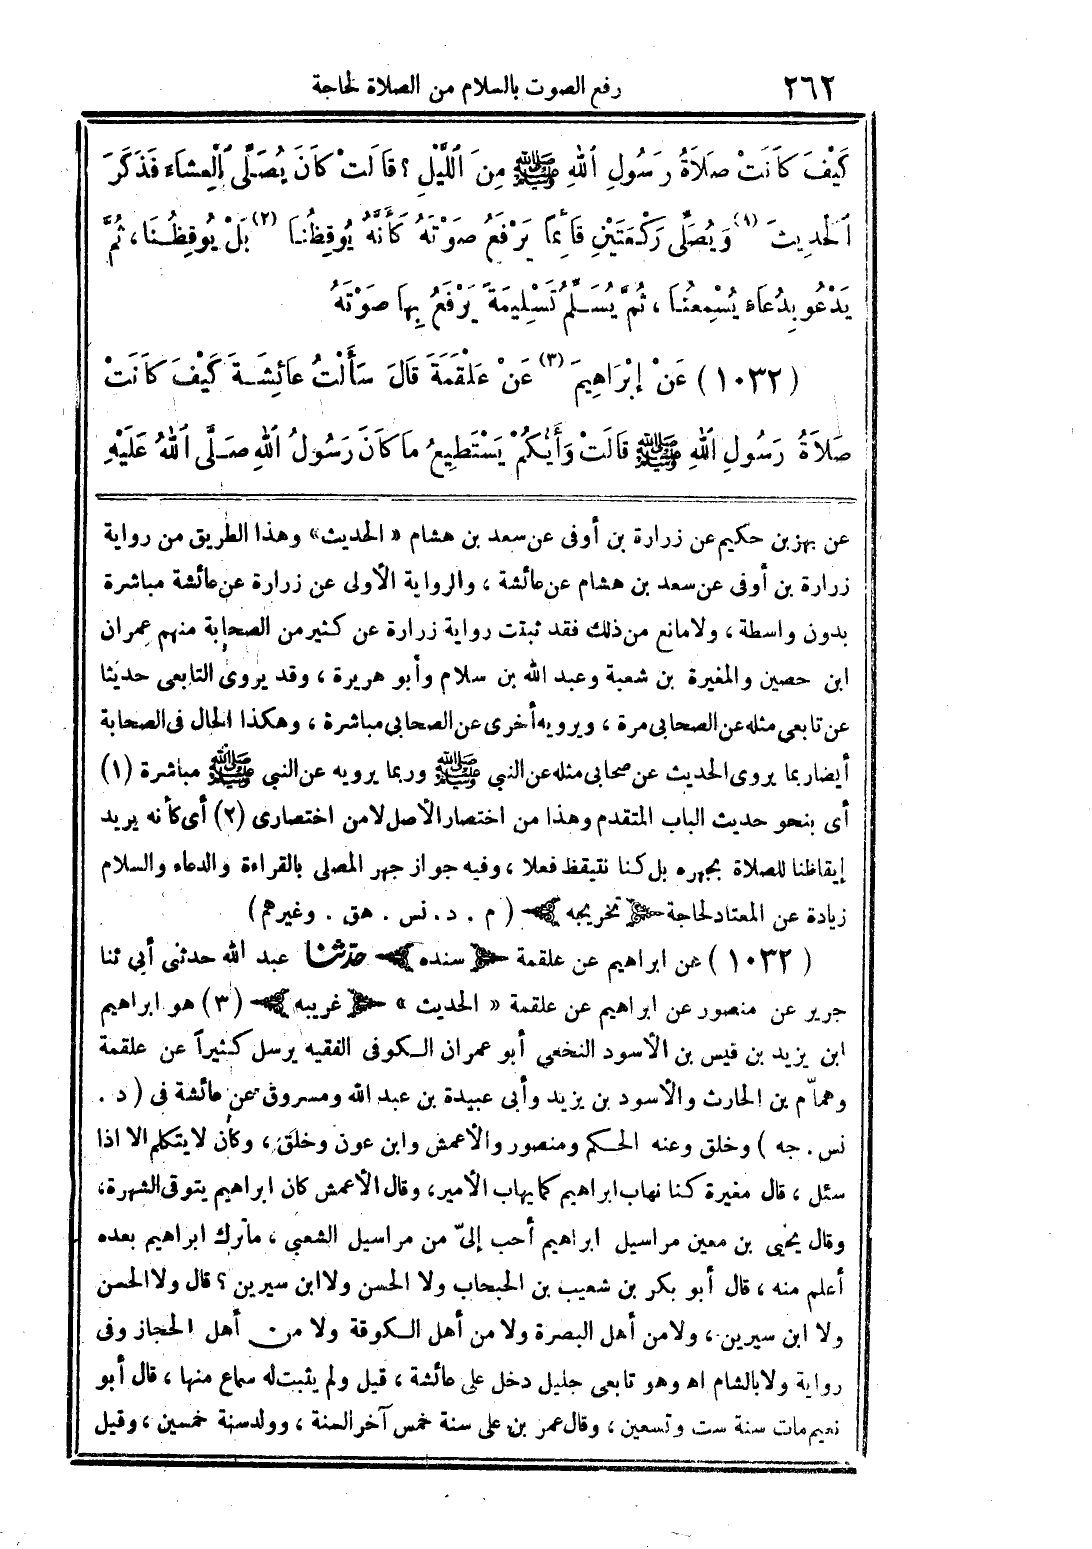 ٢٦٢ رفع الصوت بالسلام من الصلاة لحاجة
كَيْفَ كَانَتْ صَلَاةُ رَسُولِ ٱللهِ ﷺ مِنَ ٱللَّيْلِ ؟ قَالَتْ كَانَ يُصَلِّى ٱلْعِشَاءَ فَذَكَرَ
ٱلْحَدِيثَ (١) وَيُصَلِّى رَكْعَتَيْنِ قَائِمًا يَرْفَعُ صَوْتَهُ كَأَنَّهُ يُوقِظُنَا (٢) بَلْ يُوقِظُنَا، ثُمَّ
يَدْعُو بِدُعَاءٍ يُسْمِعُنَا ، ثُمَّ يُسَلِّمُ تَسْلِيمَةً يَرْفَعُ بِهَا صَوْتَهُ
(١٠٣٢) عَنْ إِبْرَاهِيمَ (٣) عَنْ عَلْقَمَةَ قَالَ سَأَلْتُ عَائِشَةَ كَيْفَ كَانَتْ
صَلَاةُ رَسُولِ ٱللهِ ﷺ قَالَتْ وَأَيُّكُمْ يَسْتَطِيعُ مَا كَانَ رَسُولُ ٱللهِ صَلَّى ٱللهُ عَلَيْهِ
عن بهز بن حكيم عن زرارة بن أوفى عن سعد بن هشام « الحديث» وهذا الطريق من رواية
زرارة بن أوفى عن سعد بن هشام عن عائشة ، والرواية الأولى عن زرارة عن عائشة مباشرة
بدون واسطة ، ولا مانع من ذلك فقد ثبتت رواية زرارة عن كثير من الصحابة منهم عمران
ابن حصين والمغيرة بن شعبة وعبد الله بن سلام وأبو هريرة ، وقد يروى التابعى حديثا
عن تابعى مثله عن الصحابى مرة ، ويرويه أخرى عن الصحابى مباشرة ، وهكذا الحال فى الصحابة
أيضا ربما يروى الحديث عن صحابى مثله عن النبى ﷺ وربما يرويه عن النبى ﷺ مباشرة (١)
أى بنحو حديث الباب المتقدم وهذا من اختصار الأصل لا من اختصارى (٢) أى كأنه يريد
إيقاظنا للصلاة بجهره بل كنا نتيقظ فعلا ، وفيه جواز جهر المصلى بالقراءة والدعاء والسلام
زيادة عن المعتاد لحاجة ﴿ تخريجه ﴾ ( م . د . نس . هق . وغيرهم )
(١٠٣٢) عن ابراهيم عن علقمة ﴿ سنده ﴾ حدّثنا عبد الله حدثنى أبى ثنا
جرير عن منصور عن ابراهيم عن علقمة « الحديث » ﴿ غريبه ﴾ (٣) هو ابراهيم
ابن يزيد بن قيس بن الأسود النخعى أبو عمران الكوفى الفقيه يرسل كثيراً عن علقمة
وهمّام بن الحارث والأسود بن يزيد وأبى عبيدة بن عبد الله ومسروق عن عائشة فى ( د .
نس . جه ) وخلق وعنه الحكم ومنصور والأعمش وابن عون وخلق ، وكان لا يتكلم الا اذا
سئل ، قال مغيرة كنا نهاب ابراهيم كما يهاب الأمير، وقال الأعمش كان ابراهيم يتوقى الشهرة،
وقال يحيى بن معين مراسيل ابراهيم أحب إلىّ من مراسيل الشعبى ، ما ترك ابراهيم بعده
أعلم منه ، قال أبو بكر بن شعيب بن الحبحاب ولا الحسن ولا ابن سيرين ؟ قال ولا الحسن
ولا ابن سيرين ، ولا من أهل البصرة ولا من أهل الكوفة ولا من أهل الحجاز وفى
رواية ولا بالشام اه وهو تابعى جليل دخل على عائشة ، قيل ولم يثبت له سماع منها ، قال أبو
نعيم مات سنة ست وتسعين ، وقال عمر بن على سنة خمس آخر السنة ، وولد سنة خمسين ، وقيل